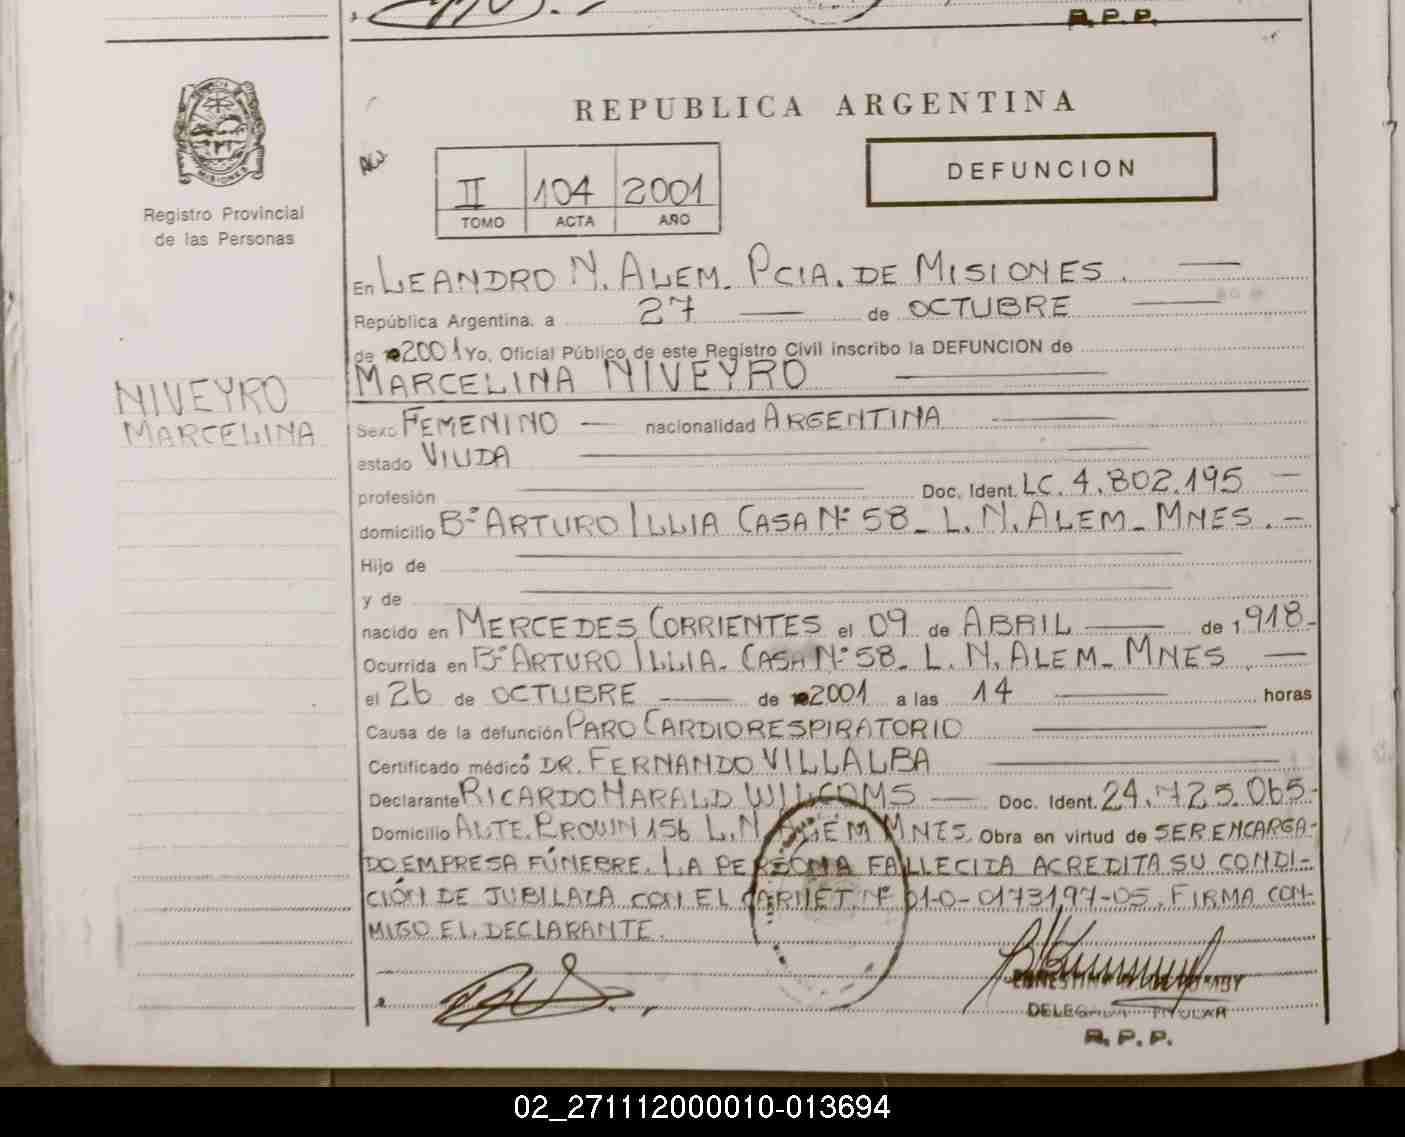 R.P.P.
REPUBLICA ARGENTINA
MISIONES
Registro Provincial
de las Personas
II 104 2001
TOMO ACTA AÑO
DEFUNCION
En LEANDRO N. ALEM. PCIA. DE MISIONES.
República Argentina, a 27 de OCTUBRE
de 2001 Yo, Oficial Público de este Registro Civil inscribo la DEFUNCION de
MARCELINA NIVEYRO
NIVEYRO
MARCELINA
Sexo FEMENINO nacionalidad ARGENTINA
estado VIUDA
profesión Doc. Ident. LC. 4.802.195
domicilio Bº ARTURO ILLIA CASA Nº 58_ L.N. ALEM_ MNES.
Hijo de
y de
nacido en MERCEDES CORRIENTES el 09 de ABRIL de 1.918-
Ocurrida en Bº ARTURO ILLIA. CASA Nº 58_ L.N. ALEM_ MNES
el 26 de OCTUBRE de 2001 a las 14 horas
Causa de la defunción PARO CARDIORESPIRATORIO
Certificado médico DR. FERNANDO VILLALBA
Declarante RICARDO HARALD Doc. Ident. 24.725.065-
Domicilio ALTE. BROWN 156 L.N. ALEM MNES. Obra en virtud de SER ENCARGA-
DO EMPRESA FÚNEBRE. LA PERSONA FALLECIDA ACREDITA SU CONDI-
CIÓN DE JUBILADA CON EL CARNET Nº 01-0-0173197-05. FIRMA CON-
MIGO EL DECLARANTE.
DELEGADA TITULAR
R.P.P.
02_271112000010-013694